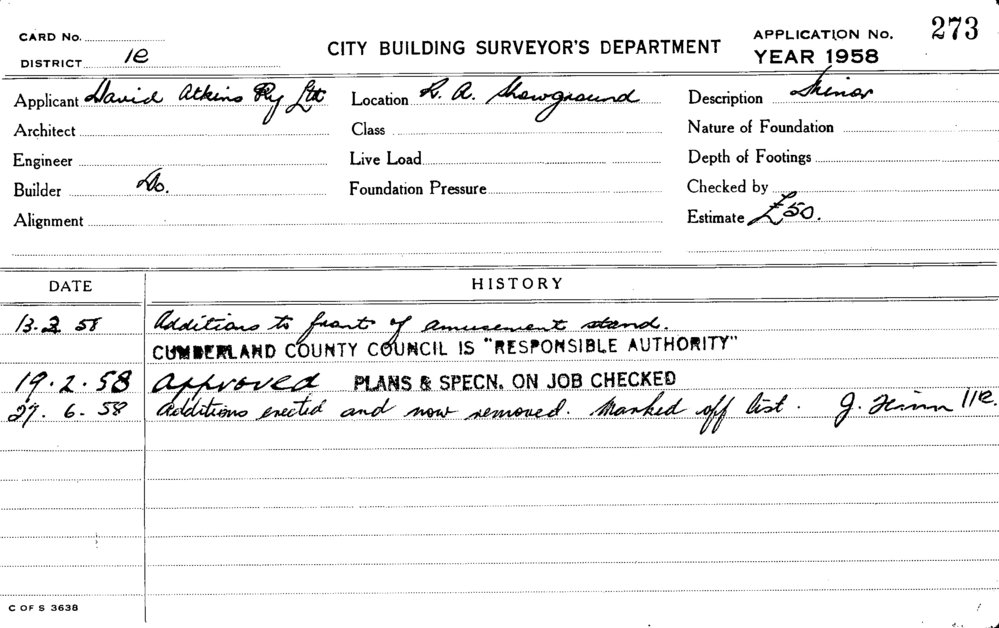 CARD No.
DISTRICT 1e
CITY BUILDING SURVEYOR'S DEPARTMENT
APPLICATION No. 273
YEAR 1958
Applicant David Atkins Pty Ltd Location R. A. Showground Description Minor
Architect Class Nature of Foundation
Engineer Live Load Depth of Footings
Builder Do. Foundation Pressure Checked by
Alignment Estimate £50.
DATE HISTORY
13.2 58 Additions to front of amusement stand.
CUMBERLAND COUNTY COUNCIL IS "RESPONSIBLE AUTHORITY"
19.2.58 Approved PLANS & SPECN. ON JOB CHECKED
27.6.58 Additions erected and now removed. Marked off list. J.
C OF S 3638